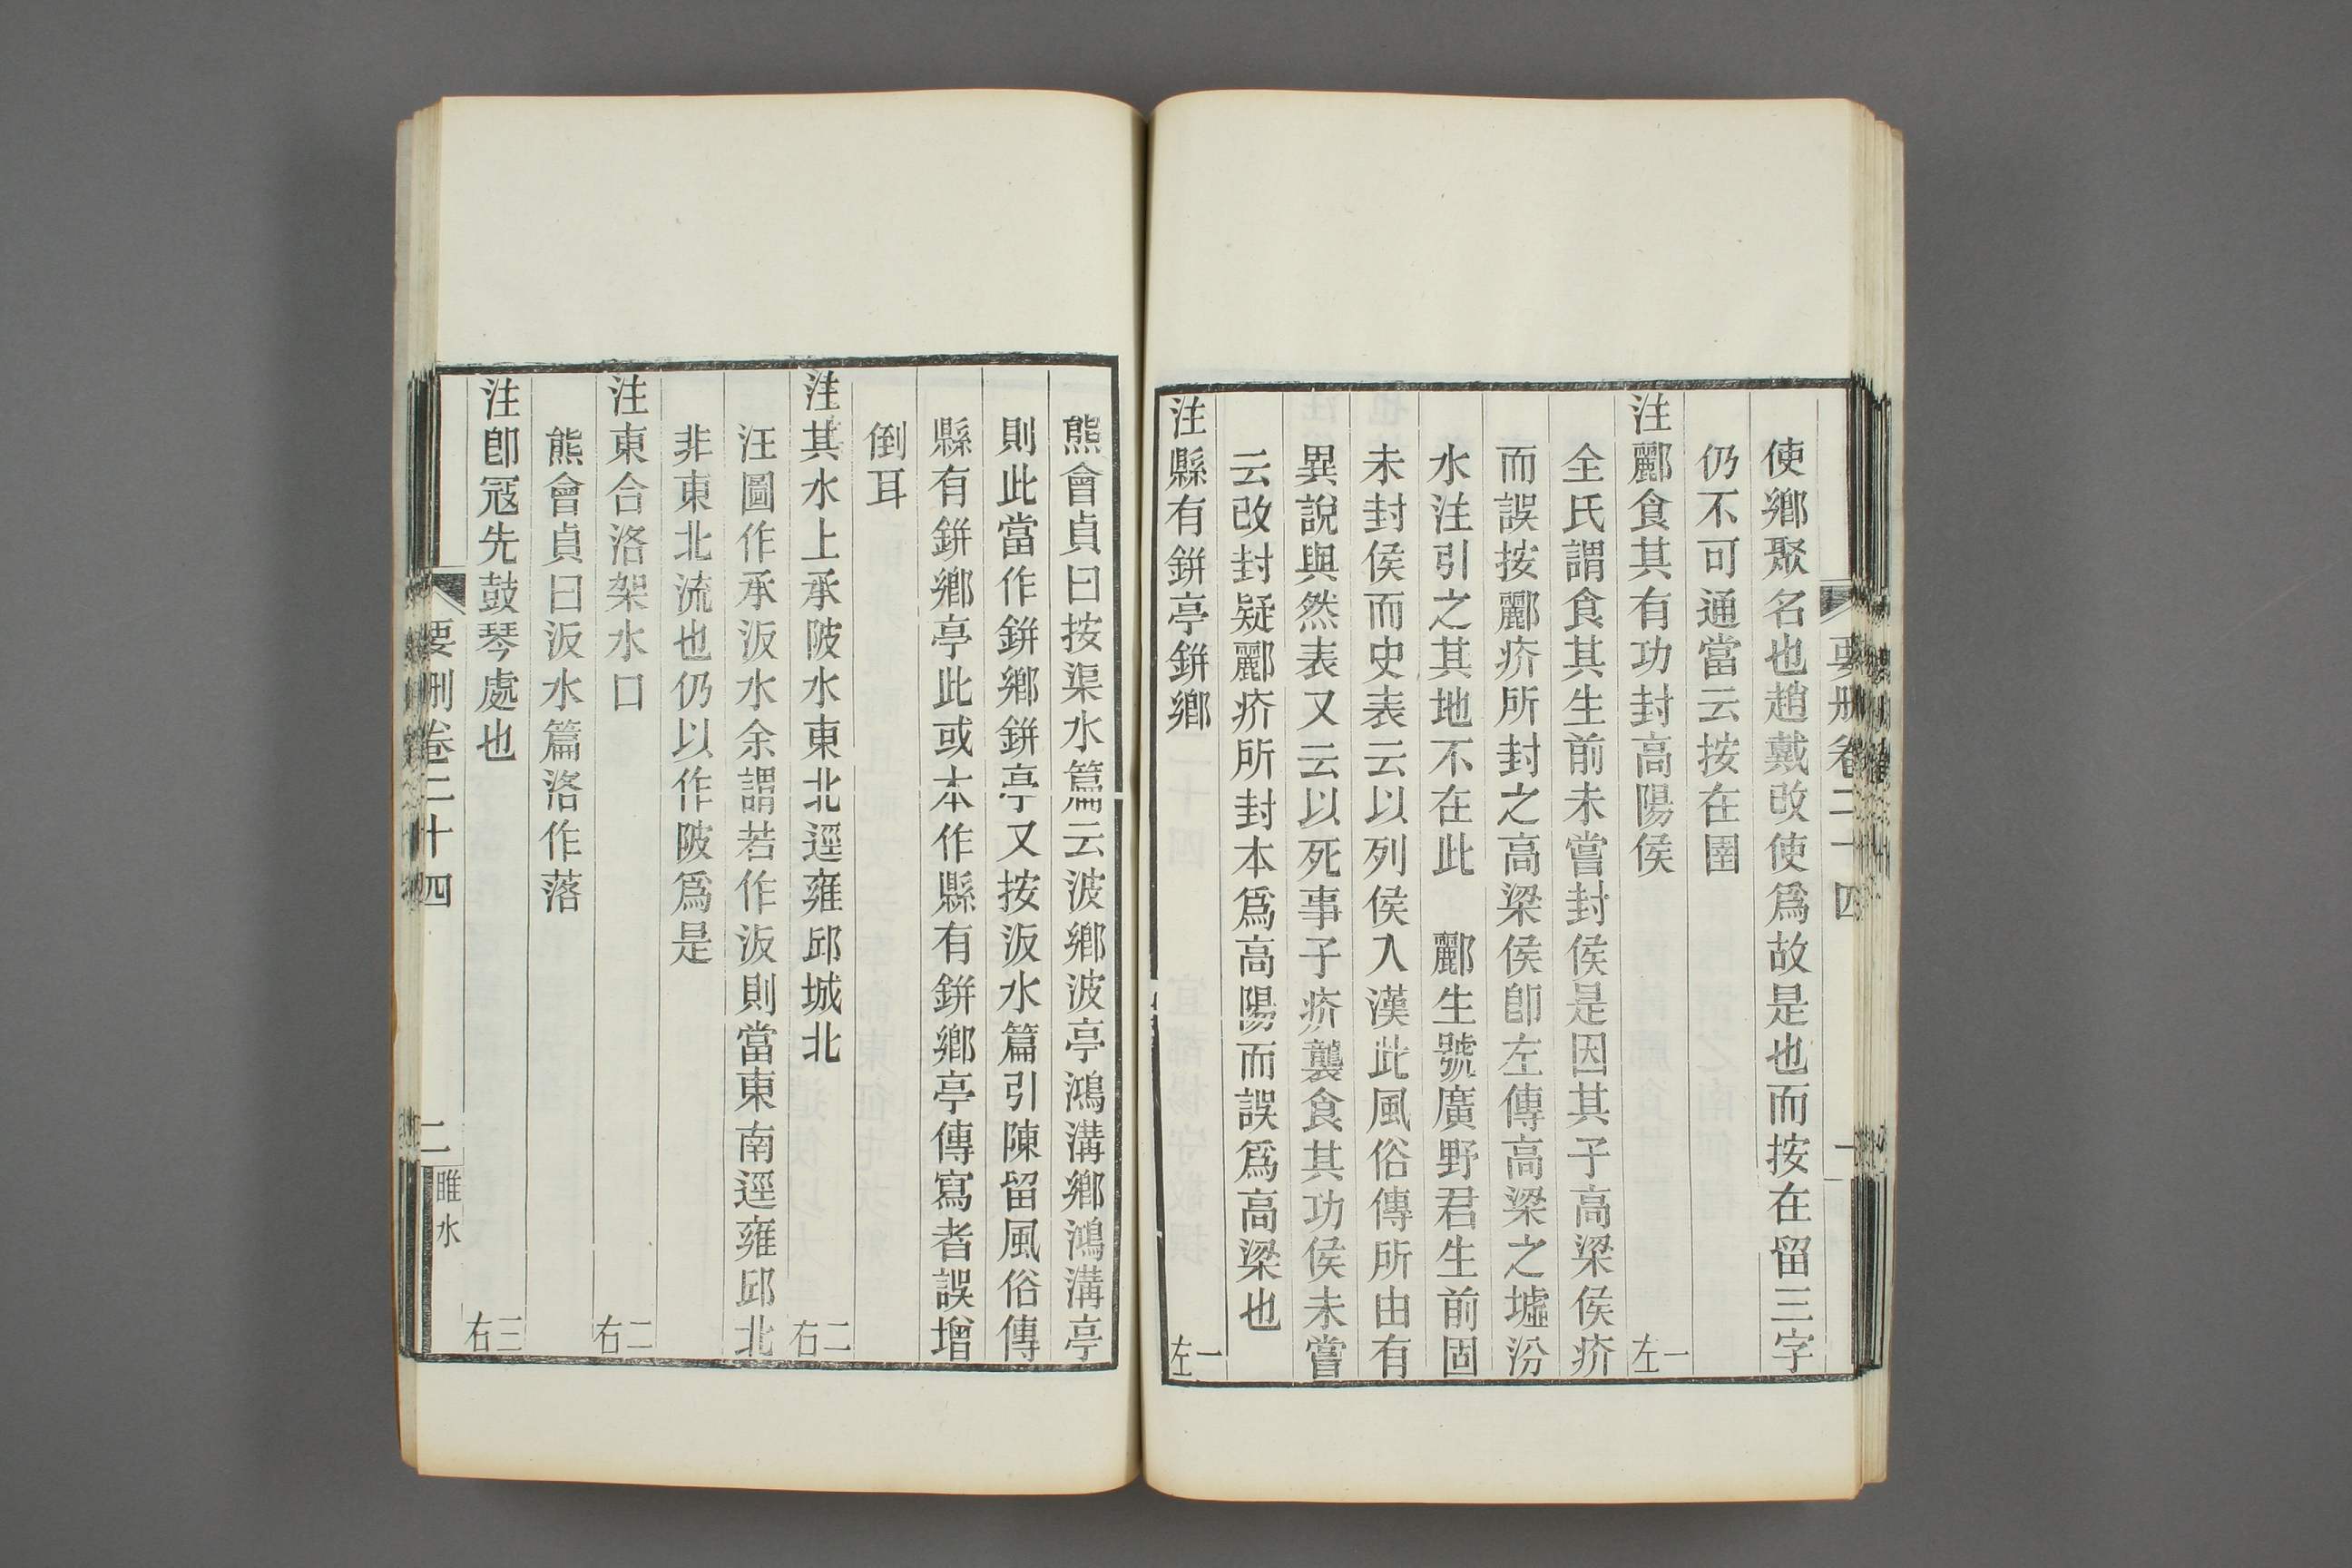 要刪卷二十四
一
使鄉聚名也趙戴改使爲故是也而按在留三字
仍不可通當云按在圉
注酈食其有功封高陽侯 一左
全氏謂食其生前未嘗封侯是因其子高梁侯疥
而誤按酈疥所封之高梁侯卽左傳高梁之墟汾
水注引之其地不在此 酈生號廣野君生前固
未封侯而史表云以列侯入漢此風俗傳所由有
異說與然表又云以死事子疥襲食其功侯未嘗
云改封疑酈疥所封本爲高陽而誤爲高梁也
注縣有鉼亭鉼鄉 一左
熊會貞曰按渠水篇云波鄉波亭鴻溝鄉鴻溝亭
則此當作鉼鄉鉼亭又按汳水篇引陳留風俗傳
縣有鉼鄉亭此或本作縣有鉼鄉亭傳寫者誤增
倒耳
注其水上承陂水東北逕雍邱城北 二右
汪圖作承汳水余謂若作汳則當東南逕雍邱北
非東北流也仍以作陂爲是
注東合洛架水口 二右
熊會貞曰汳水篇洛作落
注卽冦先鼓琴處也 三右
要刪卷二十四
二
睢水